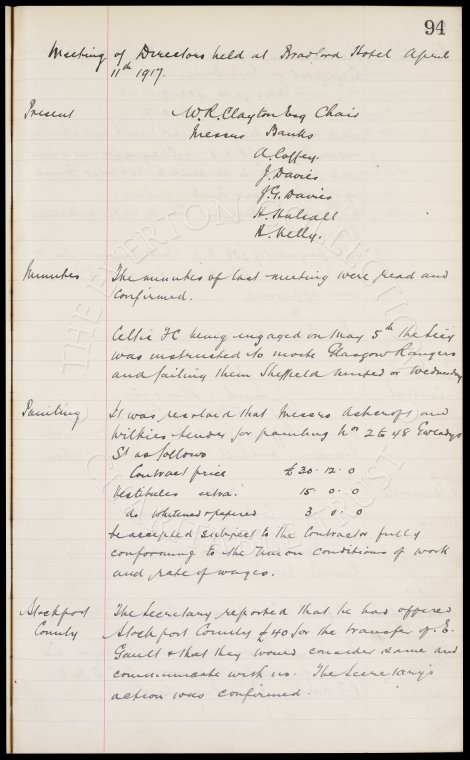 94
Meeting of Directors held at Bradford Hotel April
11th 1917.
Present W.R. Clayton Esq Chair
Messrs Banks
A. Coffey.
J. Davies
J.G. Davies
H. Halsall
B. Kelly.
Minutes The minutes of last meeting were read and
confirmed.
Celtic FC being engaged on May 5th the Secy
was instructed to invite Glasgow Rangers
and failing them Sheffield United or Wednesday
Painting It was resolved that Messrs Ashcroft and
Wilkies tender for painting Nos 2 to 48 Gwladys
St as follows
Contract price £30. 12. 0
Vestibules extra. 15. 0. 0
do whitened & papered 3. 0. 0
be accepted subject to the Contractor fully
conforming to the Union conditions of work
and rate of wages.
Stockport The Secretary reported that he had offered
County Stockport County £40 for the transfer of E.
Gault & that they would consider same and
communicate with us. The Secretary's
action was confirmed.
THE EVERTON COLLECTION